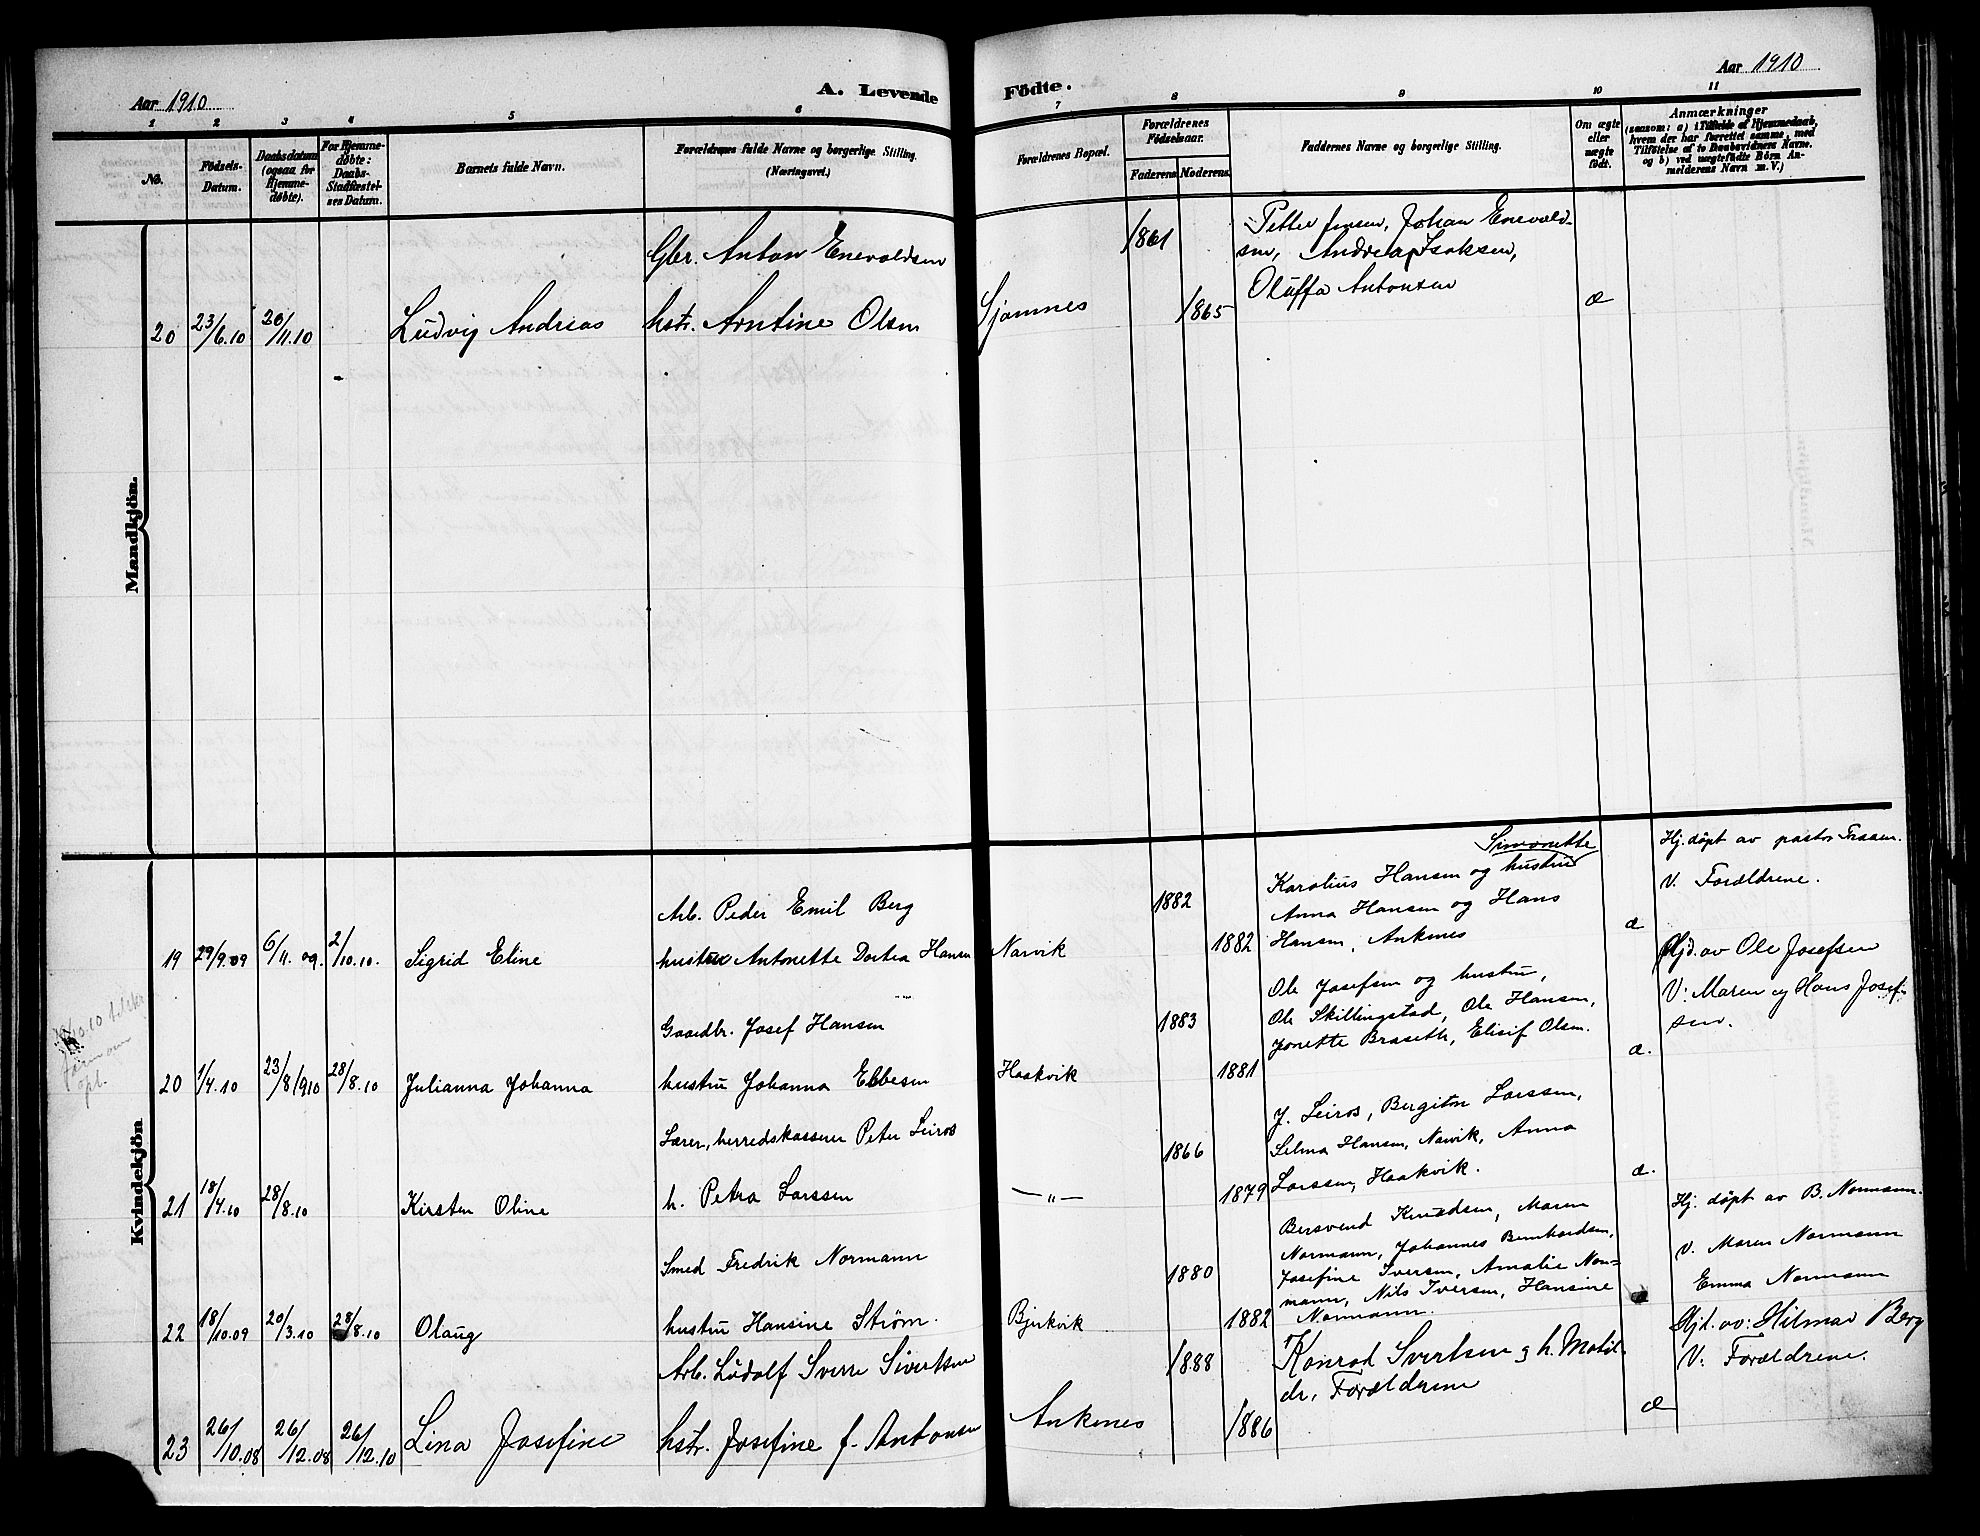 Aar 1910
A. Levende
Födte.
Aar 1910
1 2 3 4 5 6 7 8 9 10 11
No.
Födsels-
Datum.
Daabsdatum
(ogsaa for
Hjemme-
døbte).
For Hjemme-
døbte:
Daabs-
Stadfæstel-
ses Datum.
Barnets fulde Navn.
Forældrenes fulde Navne og borgerlige Stilling.
(Næringsvei.)
Forældrenes Bopæl.
Forældrenes
Födselsaar.
Faderens. Moderens.
Faddernes Navne og borgerlige Stilling.
Om ægte
eller
uægte
født.
Anmærkninger
(saasom: a) i Tilfælde af Hjemmedaab,
hvem der har forrettet samme, med
Tilföielse af to Daabsvidners Navne.
og b) ved uægtefødte Børn An-
melderens Navn m. V.)
Mandkjön.
Gbr. Anton Enevoldsen
1861
Petter Jensen, Johan Enevold-
sen, Andrea Isaksen,
Oluffa Antonsen
20 23/6.10 20/11.10 Ludvig Andreas hstr. Arntine Olsen Sjomnes 1865 æ
Kvindekjön
Simonette
Karolius Hansen og hustru
Anna Hansen og Hans
Hansen, Ankenes
Hj. døpt av pastor
V. Forældrene.
Arb. Peder Emil Berg 1882
19 29/9.09 6/11.09. 2/10.10. Sigrid Eline hustru Antonette Dortea Hansen Narvik 1882 æ
Ole Josefsen og hustru,
Ole Skillingstad, Ole Hansen,
Jonette Braseth, Elisif Olsen.
Hjd. av Ole Josefsen
V: Maren og Hans Josef-
sen.
Gaardbr. Josef Hansen 1883
20 1/4.10 23/8 1910 28/8.10 Julianna Johanna hustru Johanna Ebbesen Haakvik 1881 æ.
J. Leiros, Bergiton Larssen,
Selma Hansen, Narvik, Anna
Larssen, Haakvik.
Lærer, herredskasserer Peter Leiros 1866
21 18/4.10 28/8.10 Kirsten Oline h. Petra Larssen —„— 1879 æ.
Bersvend Knudsen, Maren
Normann, Johannes Bernhardsen,
Josefine Iversen, Amalie Nor=
mann, Nils Iversen, Hansine
Normann.
Hj. døpt av B. Normann.
V. Maren Normann
Emma Normann
Smed Fredrik Normann 1880
22 18/10.09 20/3.10 28/8.10 Olaug hustru Hansine Strøm. Bjerkvik 1882 æ
Arb. Ludolf Sverre Sivertsen 1888
Konrad Svertsen g h. Matil-
de, Forældrene
Hjd. av: Hilmar Berg
V: Forældrene.
23 26/10.08 26/12.08 26/12.10 Lina Josefine hstr. Josefine f. Antonsen Ankenes 1886 æ